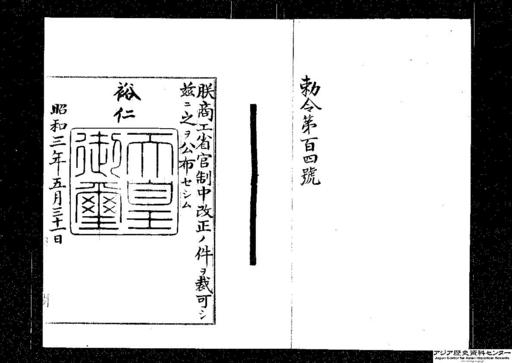 勅令第百四號
朕商工省官制中改正ノ件ヲ裁可シ
茲ニ之ヲ公布セシム
裕仁
天皇
御璽
昭和三年五月三十一日
アジア歴史資料センター
Japan Center for Asian Historical Records